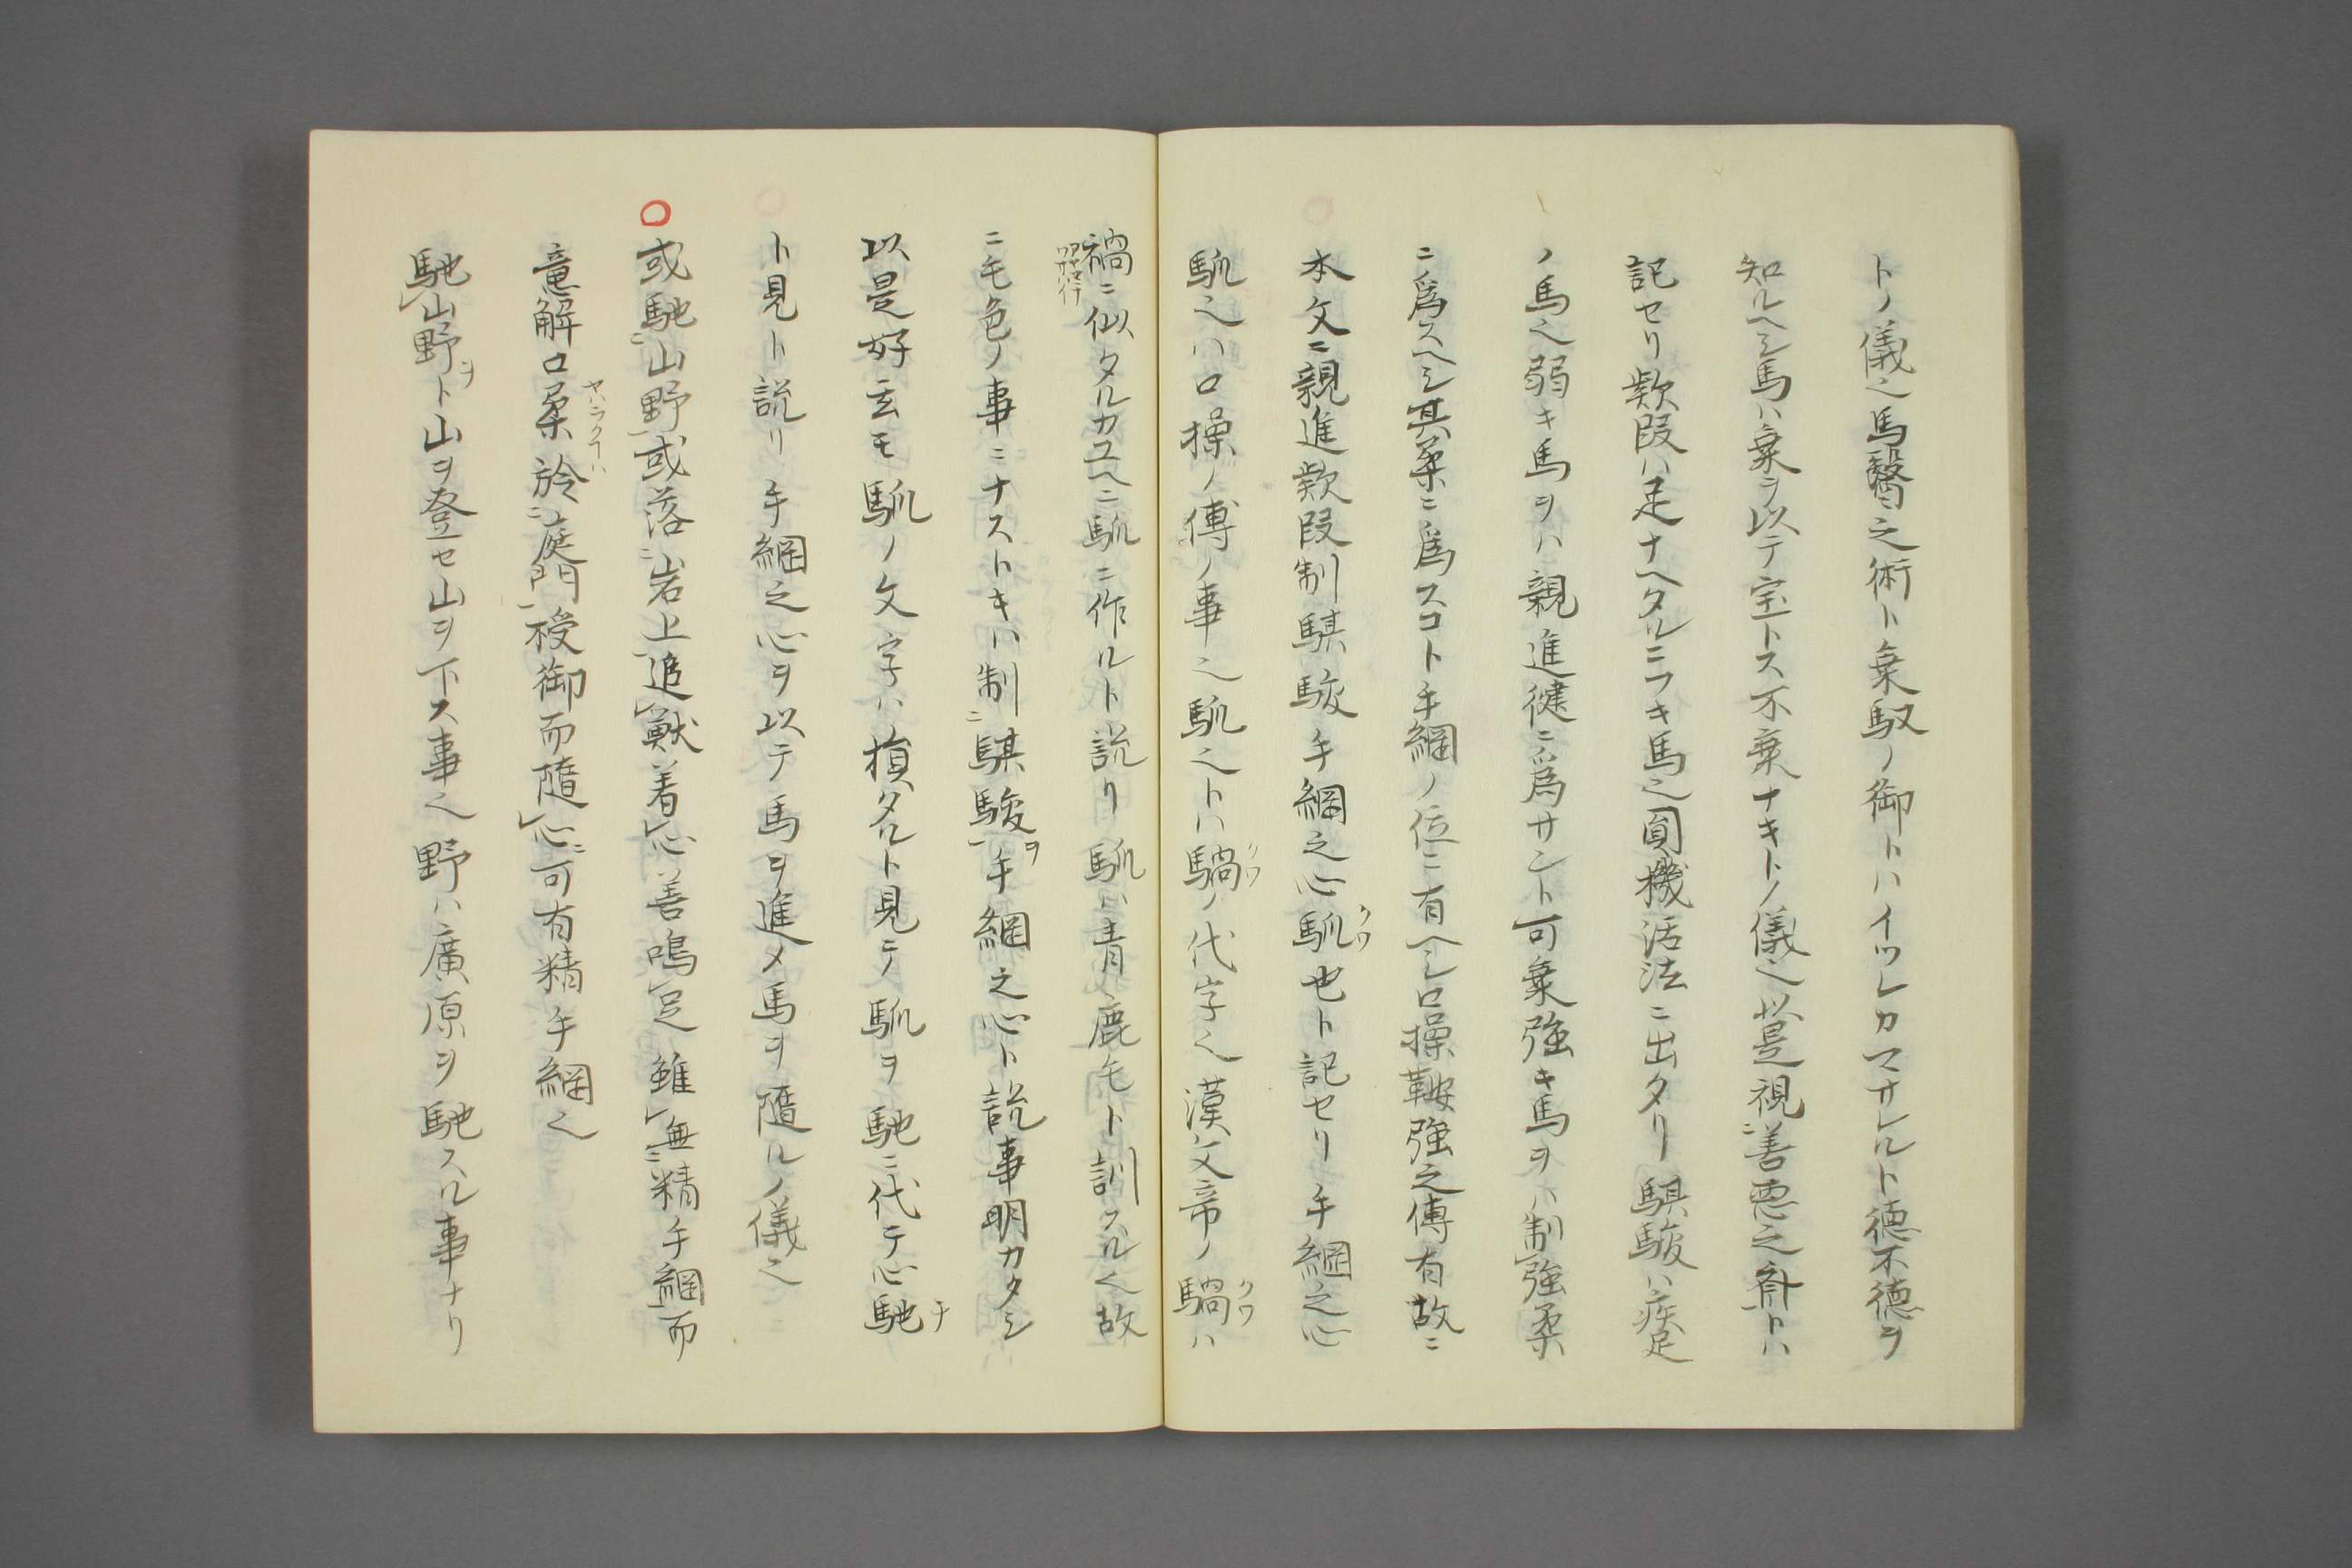 トノ儀也馬醫之術ト棄馭ノ御トハイツレカマサレルト德不德ヲ
知ルヘシ馬ハ棄ヲ以テ宝トス不棄ナキトノ儀也以是視善悪之斉トハ
記セリ欵段ハ足ナヘタルニフキ馬也圓機活法ニ出タリ騏駿ハ疾足
ノ馬也弱キ馬ヲハ親進健ニ爲サント可棄強キ馬ヲハ制強柔
ニ爲スヘシ其柔ニ爲スコト手綱ノ位ニ有ヘシ口操鞍強之傳有故ニ
本文ニ親進欵段制騏駿手綱之心駅也ト記セリ手綱之心
駅也ハ口操ノ傳ノ事也駅也トハ騧ノ代字也漢文帝ノ騧ハ
禍ニ似タルカユヘニ駅ニ作ルト説リ駅ハ青鹿毛ト訓スル也故
ニ毛色ノ事ニナストキハ制騏駿手綱之心ト説事明カタシ
以是好玄モ駅ノ文字ハ損タルト見テ駅ヲ馳ニ代テ心馳テ
ト見ト説リ手綱之心ヲ以テ馬ヲ進メ馬ヲ隨ルノ儀也
○或馳山野或落岩上追獣着心善鳴足雖無精手綱而
竜解口柔於庭門授御而隨心可有精手綱也
馳山野ト山ヲ登セ山ヲ下ス事也野ハ廣原ヲ馳スル事ナリ